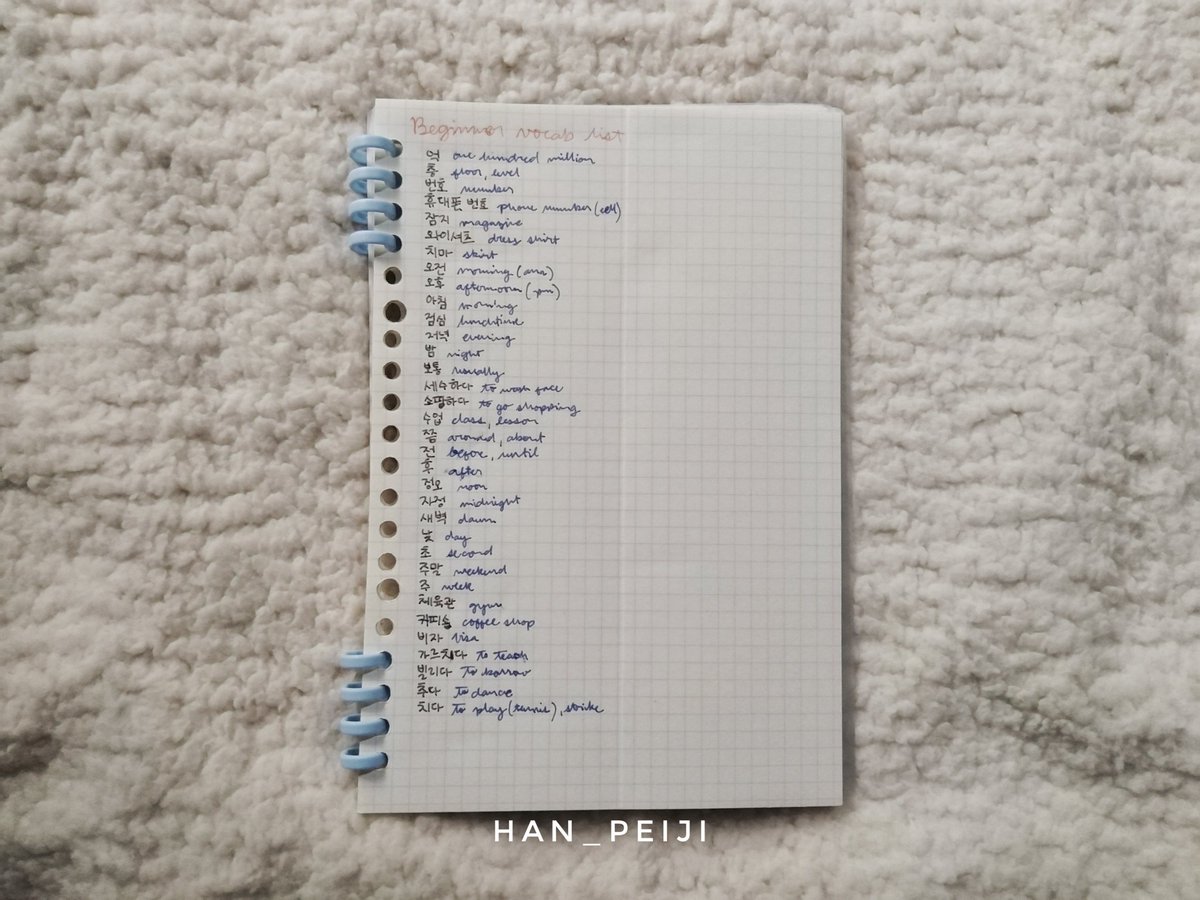 Beginner vocab list
억 one hundred million
층 floor, level
번호 number
휴대폰 번호 phone number (cell)
잡지 magazine
와이셔츠 dress shirt
치마 skirt
오전 morning (am)
오후 afternoon (pm)
아침 morning
점심 lunchtime
저녁 evening
밤 night
보통 usually
세수하다 to wash face
쇼핑하다 to go shopping
수업 class, lesson
쯤 around, about
전 before, until
후 after
정오 noon
자정 midnight
새벽 dawn
낮 day
초 second
주말 weekend
주 week
체육관 gym
커피숍 coffee shop
비자 visa
가르치다 to teach
빌리다 to borrow
추다 to dance
치다 to play (tennis), strike
HAN_PEIJI